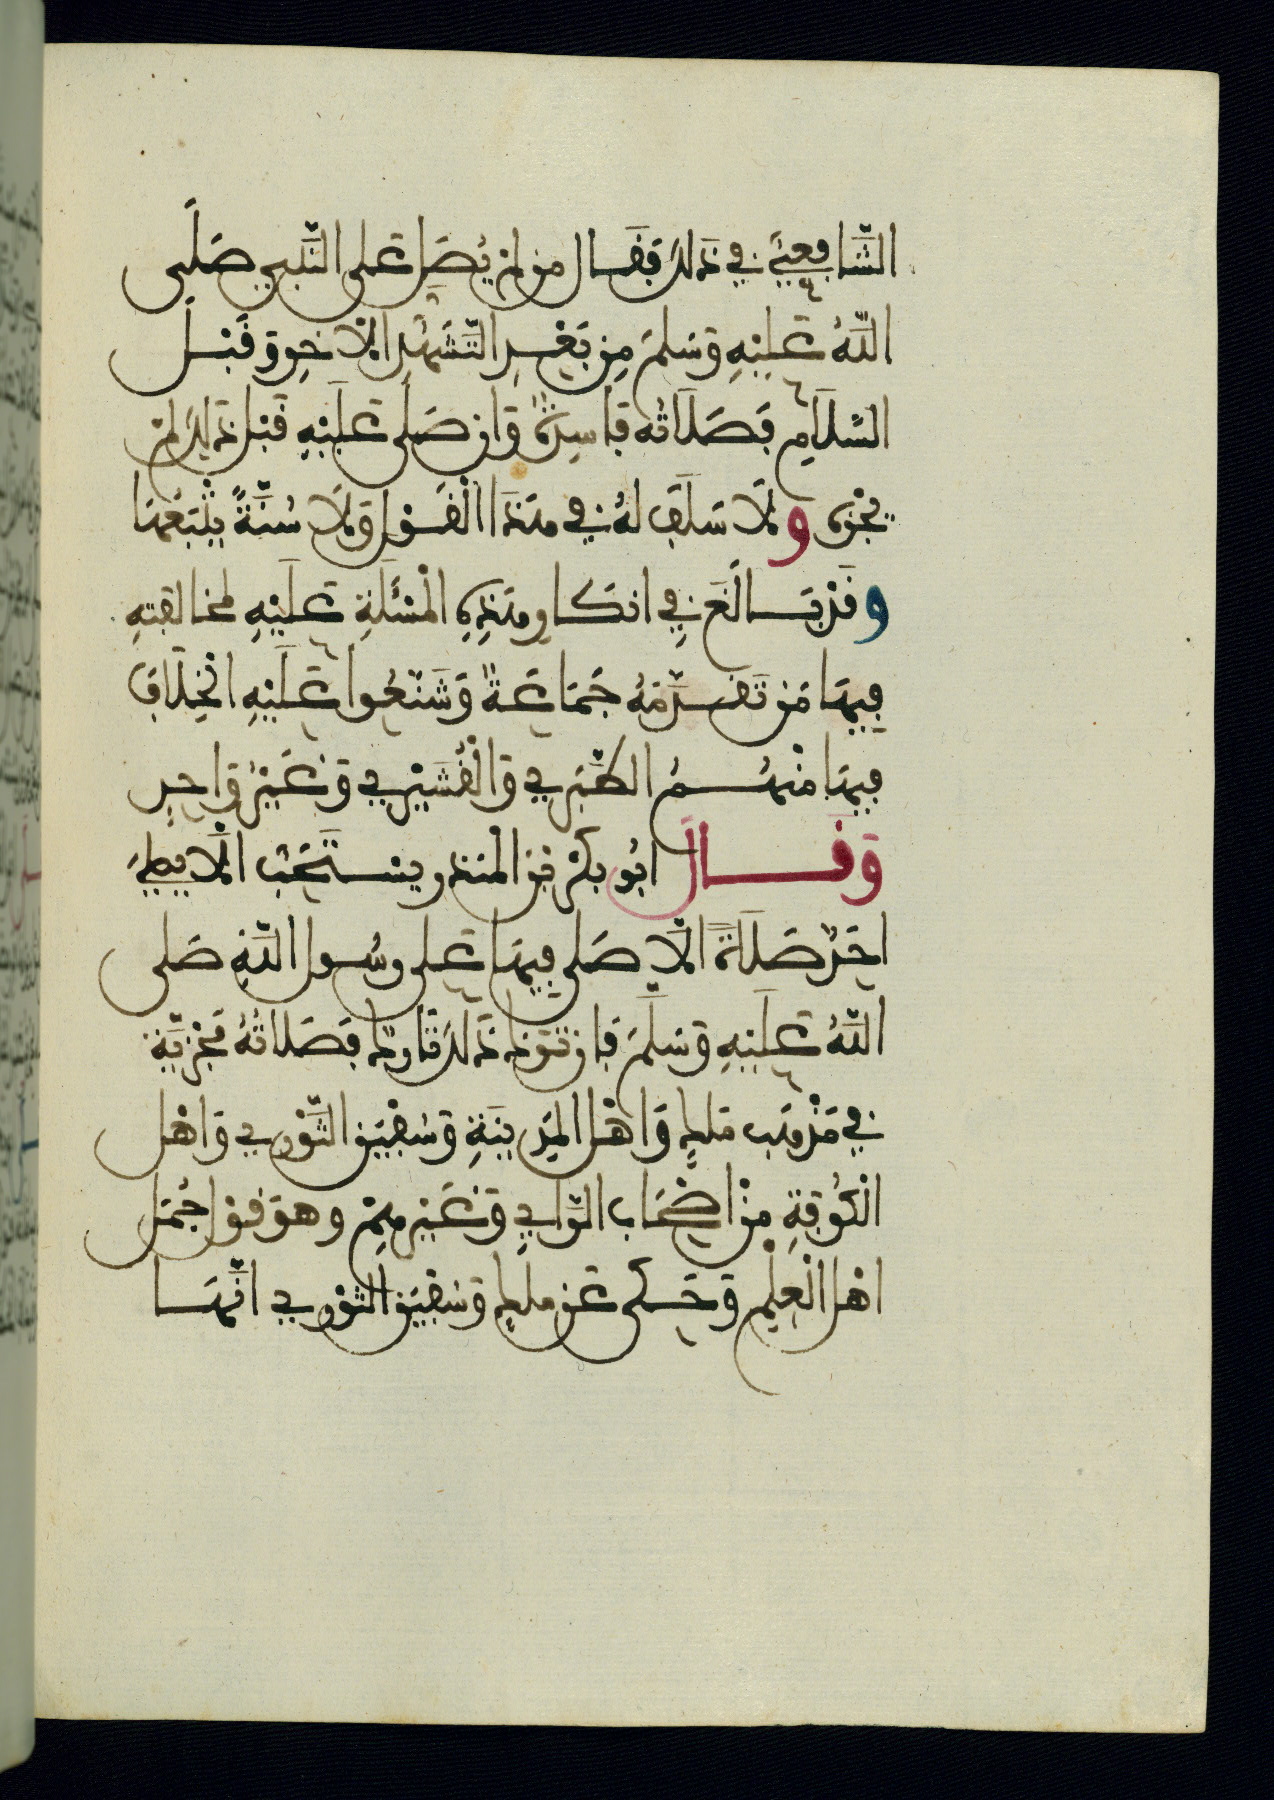 الشَّافِعِيُّ فِي ذَلِكَ فَقَالَ مَن لَمْ يُصَلِّ عَلَى النَّبِيِّ صَلَّى
اللَّهُ عَلَيْهِ وَسَلَّمَ مِن بَعْدِ التَّشَهُّدِ الْآخِرِ وَقَبْلَ
السَّلَامِ فَصَلَاتُهُ فَاسِدَةٌ وَإِن صَلَّى عَلَيْهِ قَبْلَ ذَلِكَ لَمْ
يُجْزِهِ وَلَا سَلَفَ لَهُ فِي هَذَا الْقَوْلِ وَلَا سُنَّةً يَتَّبِعُهَا
وَقَدْ بَالَغَ فِي انكَارِ هَذِهِ الْمَسْئَلَةِ عَلَيْهِ لِمُخَالَفَتِهِ
فِيهَا مَن تَقَدَّمَهُ جَمَاعَةٌ وَشَنَّعُوا عَلَيْهِ الْخِلَافَ
فِيهَا مِنْهُمُ الطَّبَرِي وَالْقُشَيْرِي وَغَيْرُ وَاحِدٍ
وَقَالَ ابُو بَكْرِ بْنُ الْمُنذِرِ يُسْتَحَبُّ الَّا يُصَلِّيَ
احَدٌ صَلَاةً الَّا صَلَّى فِيهَا عَلَى رَسُولِ اللَّهِ صَلَّى
اللَّهُ عَلَيْهِ وَسَلَّمَ فَإِن تَرَكَ ذَلِكَ تَارِكٌ فَصَلَاتُهُ مُجْزِيَّةٌ
فِي مَذْهَبِ مَلِكٍ وَاهْلِ الْمَدِينَةِ وَسُفْيَنَ الثَّوْرِي وَاهْلِ
الْكُوفَةِ مِنْ اصْحَابِ الرَّايِ وَغَيْرِهِمْ وَهُوَ قَوْلُ جُمَلِ
اهْلِ الْعِلْمِ وَحَكَى عَن مَلِكٍ وَسُفْيَنَ الثَّوْرِي انَّهَا